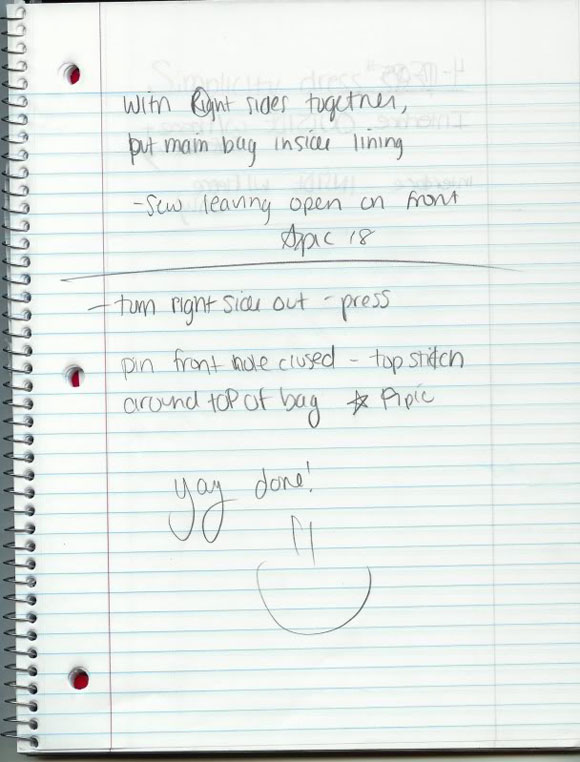 With Right sides together,
put main bag inside lining
- Sew leaving open on front
pic 18
- turn right side out - press
pin front hole closed - top stitch
around top of bag ☆ pic
yay done!